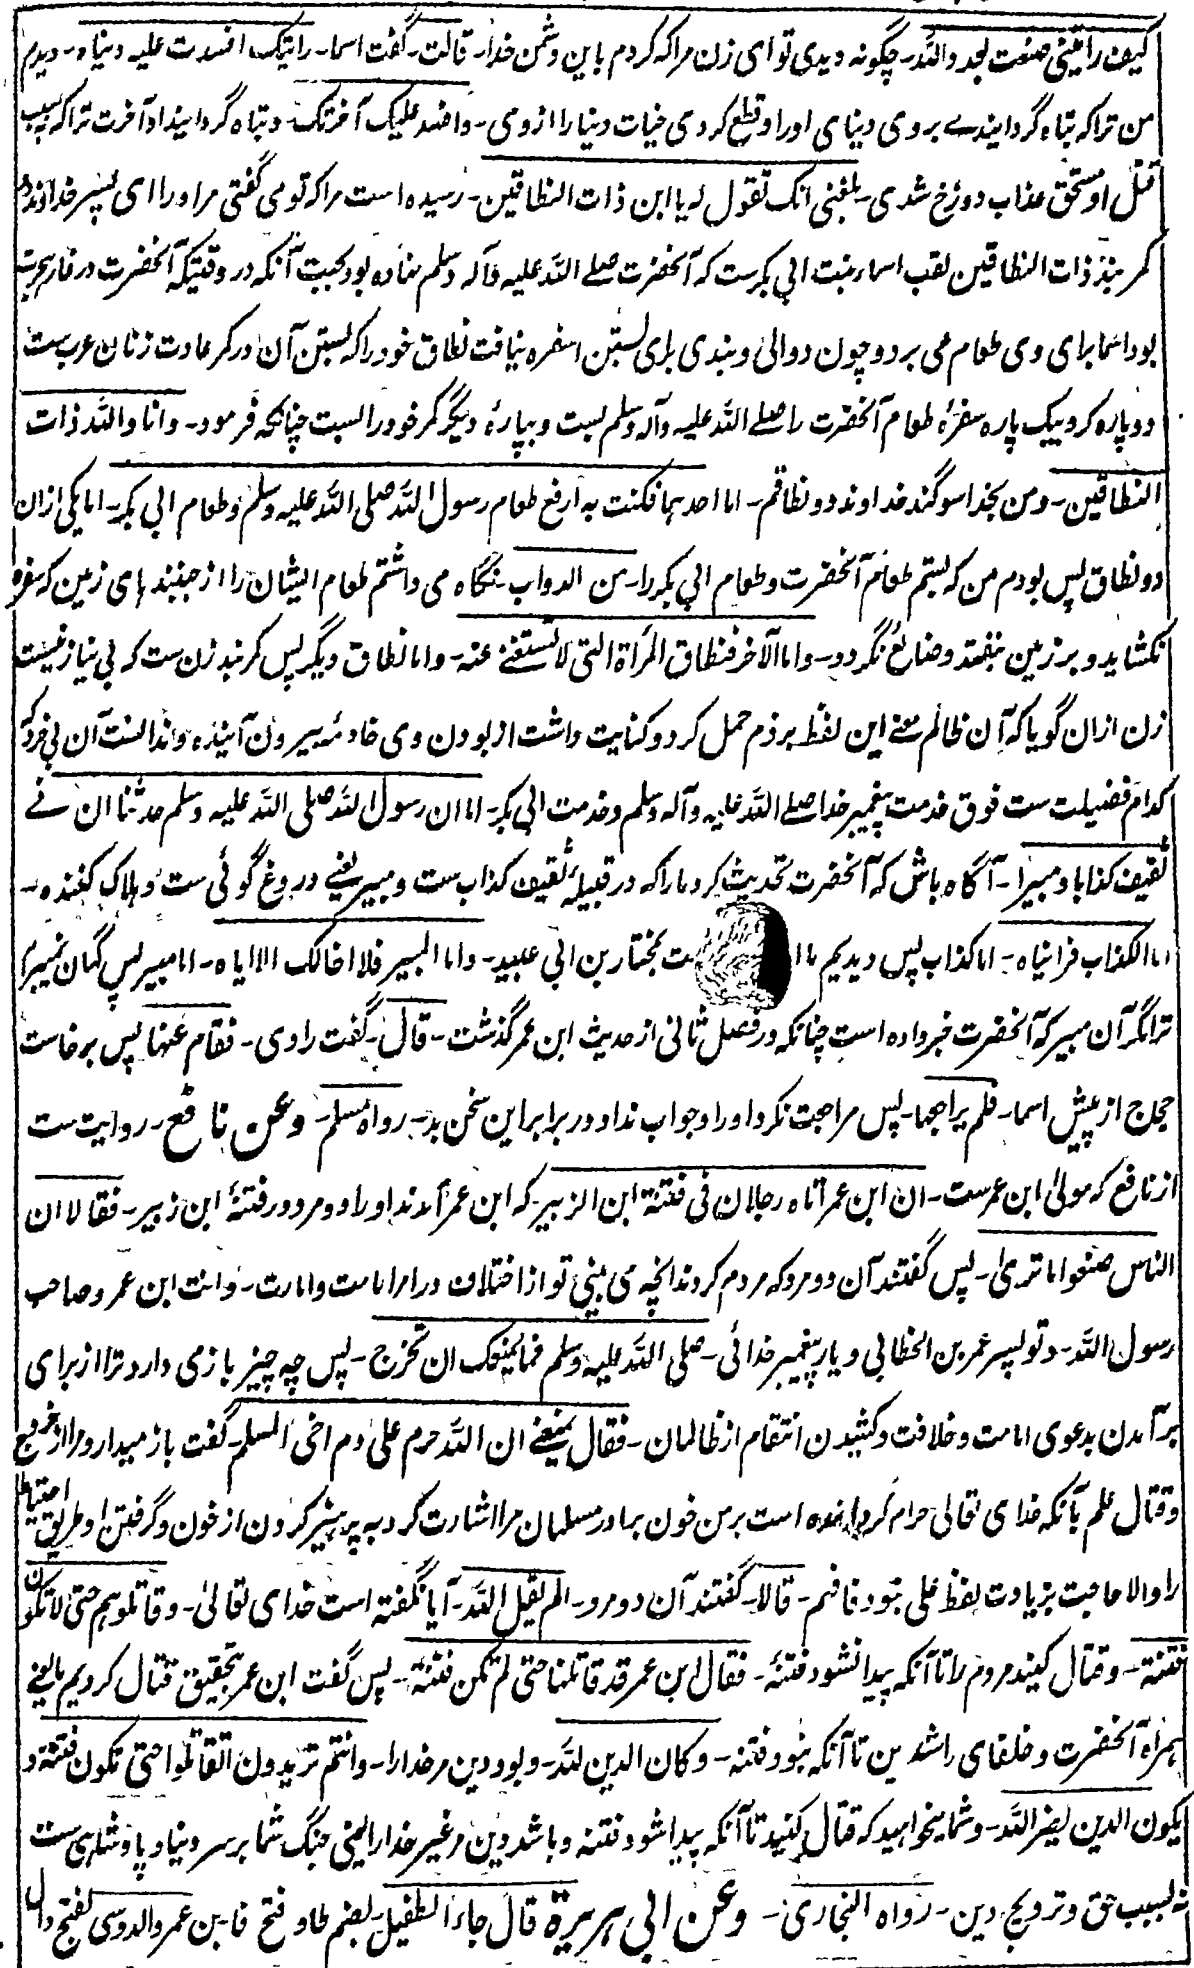 کیف رأیتنی صنعت بعدو الله۔ چگونه دیدی تو ای زن مرا که کردم باین دشمن خدا۔ قالت۔ گفت اسما۔ رأیتک افسدت علیه دنیاه۔ دیدم
من ترا که تباه گردانیدے بروی دنیای او را و قطع کردی حیات دنیا را از وی۔ وافسد علیک آخرتک۔ و تباه گردانید او آخرت ترا که بسبب
قتل او مستحق عذاب دوزخ شدی۔ بلغنی انک تقول له یا ابن ذات النطاقین۔ رسیده است مرا که تو می گفتی مر او را ای پسر خداوند دو
کمر بند ذات النطاقین لقب اسماء بنت ابی بکرست که آنحضرت صلے الله علیه وآله وسلم نهاده بود بجهت آنکه در وقتیکه آنحضرت در غار هجرت
بود اسما برای وی طعام می برد و چون دوالی و بندی برای بستن سفره نیافت نطاق خود را که بستن آن در کمر عادت زنان عرب ست
دو پاره کرد و بیک پاره سفرهٔ طعام آنحضرت را صلے الله علیه وآله وسلم بست و بپارهٔ دیگر کمر خود را بست چنانکه فرمود۔ وانا والله ذات
النطاقین۔ ومن بخدا سوگند خداوند دو نطاقم۔ اما احدهما فکنت به ارفع طعام رسول الله صلی الله علیه وسلم وطعام ابی بکر۔ اما یکی ازان
دو نطاق پس بودم من که بستم طعام آنحضرت و طعام ابی بکر را۔ من الدواب۔ نگاه می داشتم طعام ایشان را از جنبندهای زمین که سفره
نکشاید و بر زمین نیفتد و ضائع نگردد۔ واما الآخر فنطاق المرأة التی لا تستغنے عنه۔ واما نطاق دیگر پس کمر بند زن ست که بی نیاز نیست
زن ازان گویا که آن ظالم معنے این لفظ بر ذم حمل کرد و کنایت داشت از بودن وی خادمهٔ بیرون آینده و ندانست آن بی خرد که
کدام فضیلت ست فوق خدمت پیغمبر خدا صلے الله علیه وآله وسلم وخدمت ابی بکر۔ اما ان رسول الله صلی الله علیه وسلم حدثنا ان فے
ثقیف کذابا ومبیرا۔ آگاه باش که آنحضرت تحدیث کرد ما را که در قبیلهٔ ثقیف کذاب ست ومبیر یعنے دروغ گوئی ست و هلاک کننده۔
اما الکذاب فرأیناه۔ اما کذاب پس دیدیم ما ست بختار بن ابی عبید۔ واما المبیر فلا اخالک الا ایاه۔ اما مبیر پس گمان نمیبرم
ترا مگر آن مبیر که آنحضرت خبر داده است چنانکه در فصل ثانی از حدیث ابن عمر گذشت۔ قال۔ گفت راوی۔ فقام عنها پس برخاست
حجاج از پیش اسما۔ فلم یراجعها۔ پس مراجعت نکرد او را و جواب نداد در برابر این سخن بد۔ رواه مسلم۔ وعن نافع۔ روایت ست
از نافع که مولیٰ ابن عمرست۔ ان ابن عمر اتاه رجلان فی فتنة ابن الزبیر۔ که ابن عمر آمدند او را دو مرد در فتنهٔ ابن زبیر۔ فقالا ان
الناس صنعوا ما تریٰ۔ پس گفتند آن دو مرد که مردم کردند آنچه می بینی تو از اختلاف در امر امامت وامارت۔ وانت ابن عمر وصاحب
رسول الله۔ وتو پسر عمر بن الخطابی ویار پیغمبر خدائی۔ صلی الله علیه وسلم فما یمنعک ان تخرج۔ پس چه چیز باز می دارد ترا از برای
برآمدن بدعوی امامت وخلافت وکشیدن انتقام از ظالمان۔ فقال یمنعنے ان الله حرم علی دم اخی المسلم۔ گفت باز میدارد مرا از خروج
وقتال علم بآنکه خدای تعالی حرام گردانیده است بر من خون برادر مسلمان مرا اشارت کرد به پرهیز کردن از خون وگرفتن او طریق احتیاط
را والا حاجت بزیادت لفظ علی نبود فافهم۔ قالا۔ گفتند آن دو مرد۔ الم یقل الله۔ آیا نگفته است خدای تعالیٰ۔ وقاتلوهم حتی لا تکون
فتنة۔ وقتال کنید مردم را تا آنکه پیدا نشود فتنهٔ۔ فقال ابن عمر قد قاتلنا حتی لم تکن فتنة۔ پس گفت ابن عمر بتحقیق قتال کردیم ما یعنے
همراه آنحضرت وخلفای راشدین تا آنکه نبود فتنه۔ وکان الدین لله۔ وبود دین مر خدا را۔ وانتم تریدون ان تقاتلوا حتی تکون فتنة و
یکون الدین لغیر الله۔ وشما میخواهید که قتال کنید تا آنکه پیدا شود فتنه وباشد دین مر غیر خدا را یعنی جنگ شما بر سر دنیا و پادشاهی ست
نه بسبب حق وترویج دین۔ رواه البخاری۔ وعن ابی هریرة قال جاء الطفیل۔ بضم طا وفتح فا۔ بن عمرو الدوسی بفتح دال